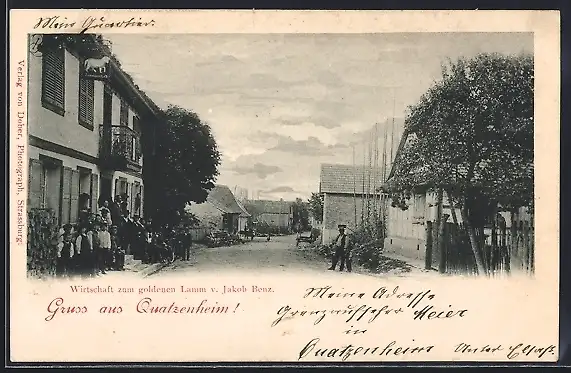 Mein Quartier.
Verlag von Doher, Photograph, Strassburg.
Wirtschaft zum goldenen Lamm v. Jakob Benz.
Gruss aus Quatzenheim!
Meine Adresse
Grenzaufseher Meier
in
Quatzenheim
Unter Elsaß.